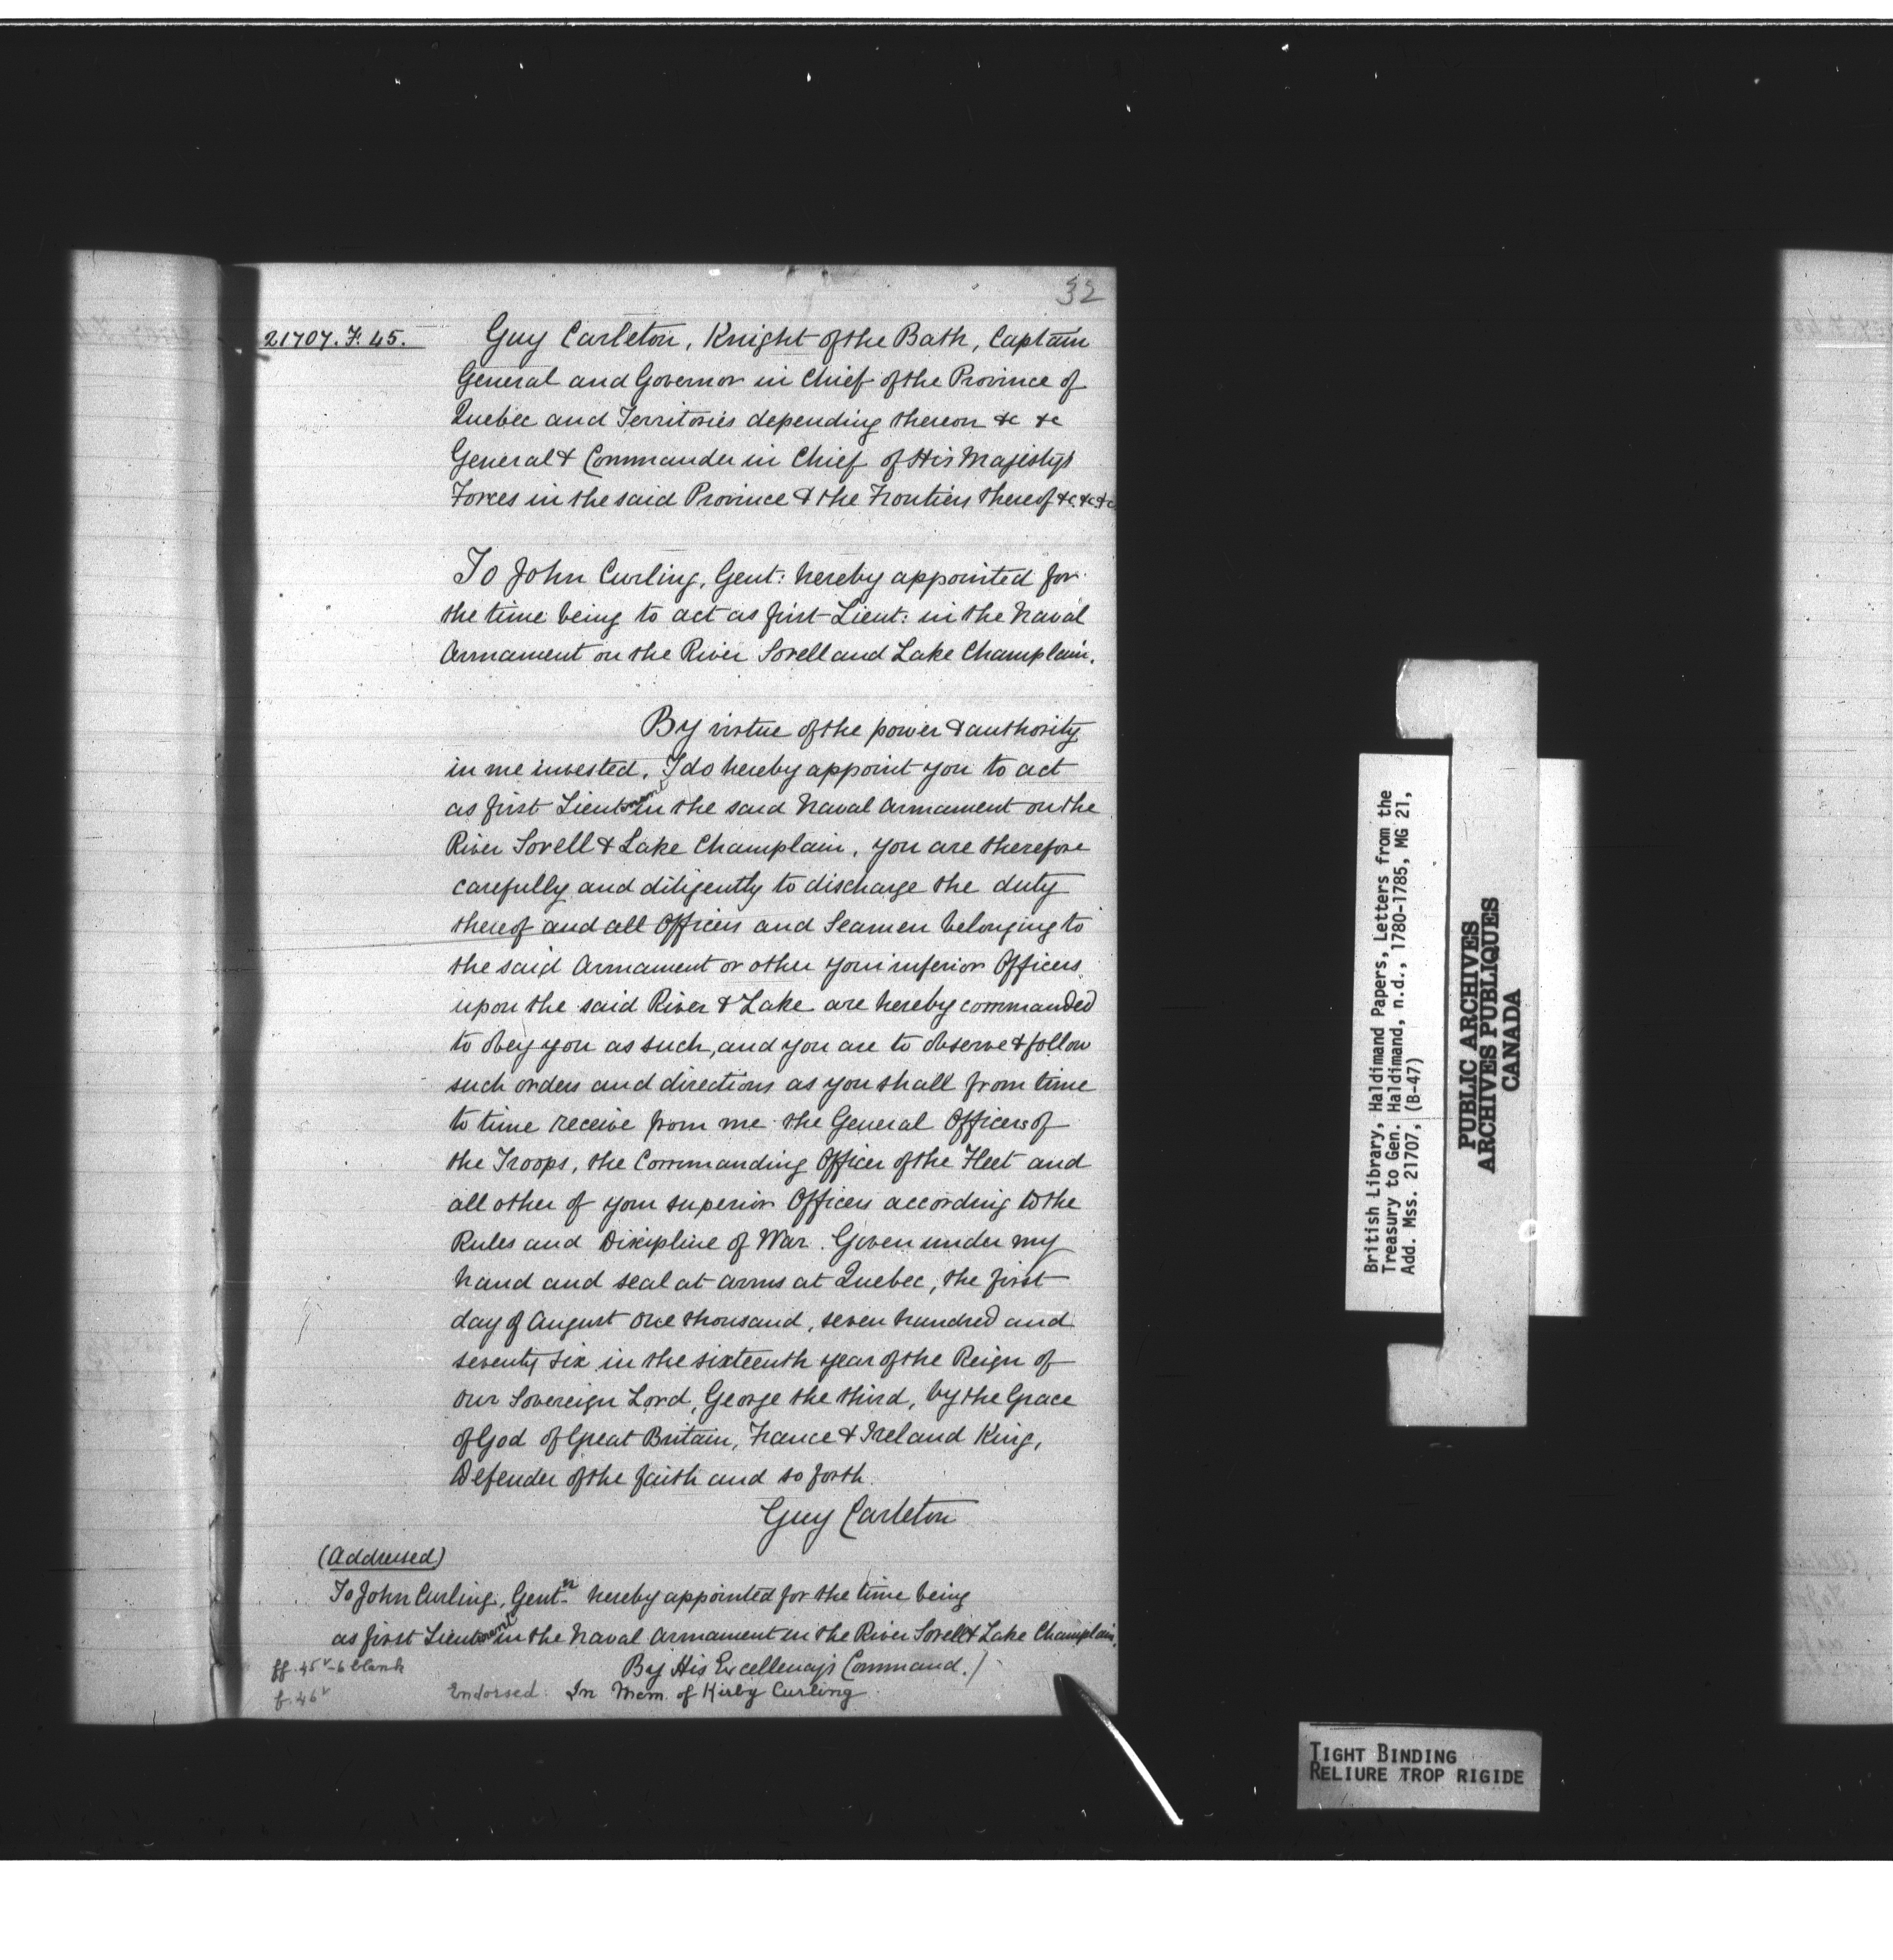 32
21707. F. 45.
Guy Carleton, Knight of the Bath, Captain
General and Governor in Chief of the Province of
Quebec and Territories depending thereon &c &c
General & Commander in Chief of His Majesty's
Forces in the said Province & the Frontiers thereof &c. &c. &c
To John Curling, Gent: hereby appointed for
the time being to act as first Lieut: in the Naval
Armament on the River Sorell and Lake Champlain.
By virtue of the power & authority
in me invested, I do hereby appoint you to act
as first Lieutenant in the said Naval Armament on the
River Sorell & Lake Champlain, you are therefore
carefully and diligently to discharge the duty
thereof and all Officers and Seamen belonging to
the said Armament or other your inferior Officers
upon the said River & Lake are hereby commanded
to obey you as such, and you are to observe & follow
such orders and directions as you shall from time
to time receive from me the General Officers of
the Troops, the Commanding Officer of the Fleet and
all other of your superior Officers according to the
Rules and Discipline of War. Given under my
hand and seal at arms at Quebec, the first
day of August One thousand, seven hundred and
seventy six in the sixteenth year of the Reign of
Our Sovereign Lord, George the third, by the Grace
of God of Great Britain, France & Ireland King,
Defender of the faith and so forth.
Guy Carleton
(Addressed)
To John Curling, Gentn hereby appointed for the time being
as first Lieutenant in the Naval Armament in the River Sorell & Lake Champlain.
By His Excellency's Command.)
ff. 45v-6 blank
f. 46v
Endorsed: In Mem. of Kirby Curling
British Library, Haldimand Papers, Letters from the
Treasury to Gen. Haldimand, n.d., 1780-1785, MG 21,
Add. Mss. 21707, (B-47)
PUBLIC ARCHIVES
ARCHIVES PUBLIQUES
CANADA
TIGHT BINDING
RELIURE TROP RIGIDE